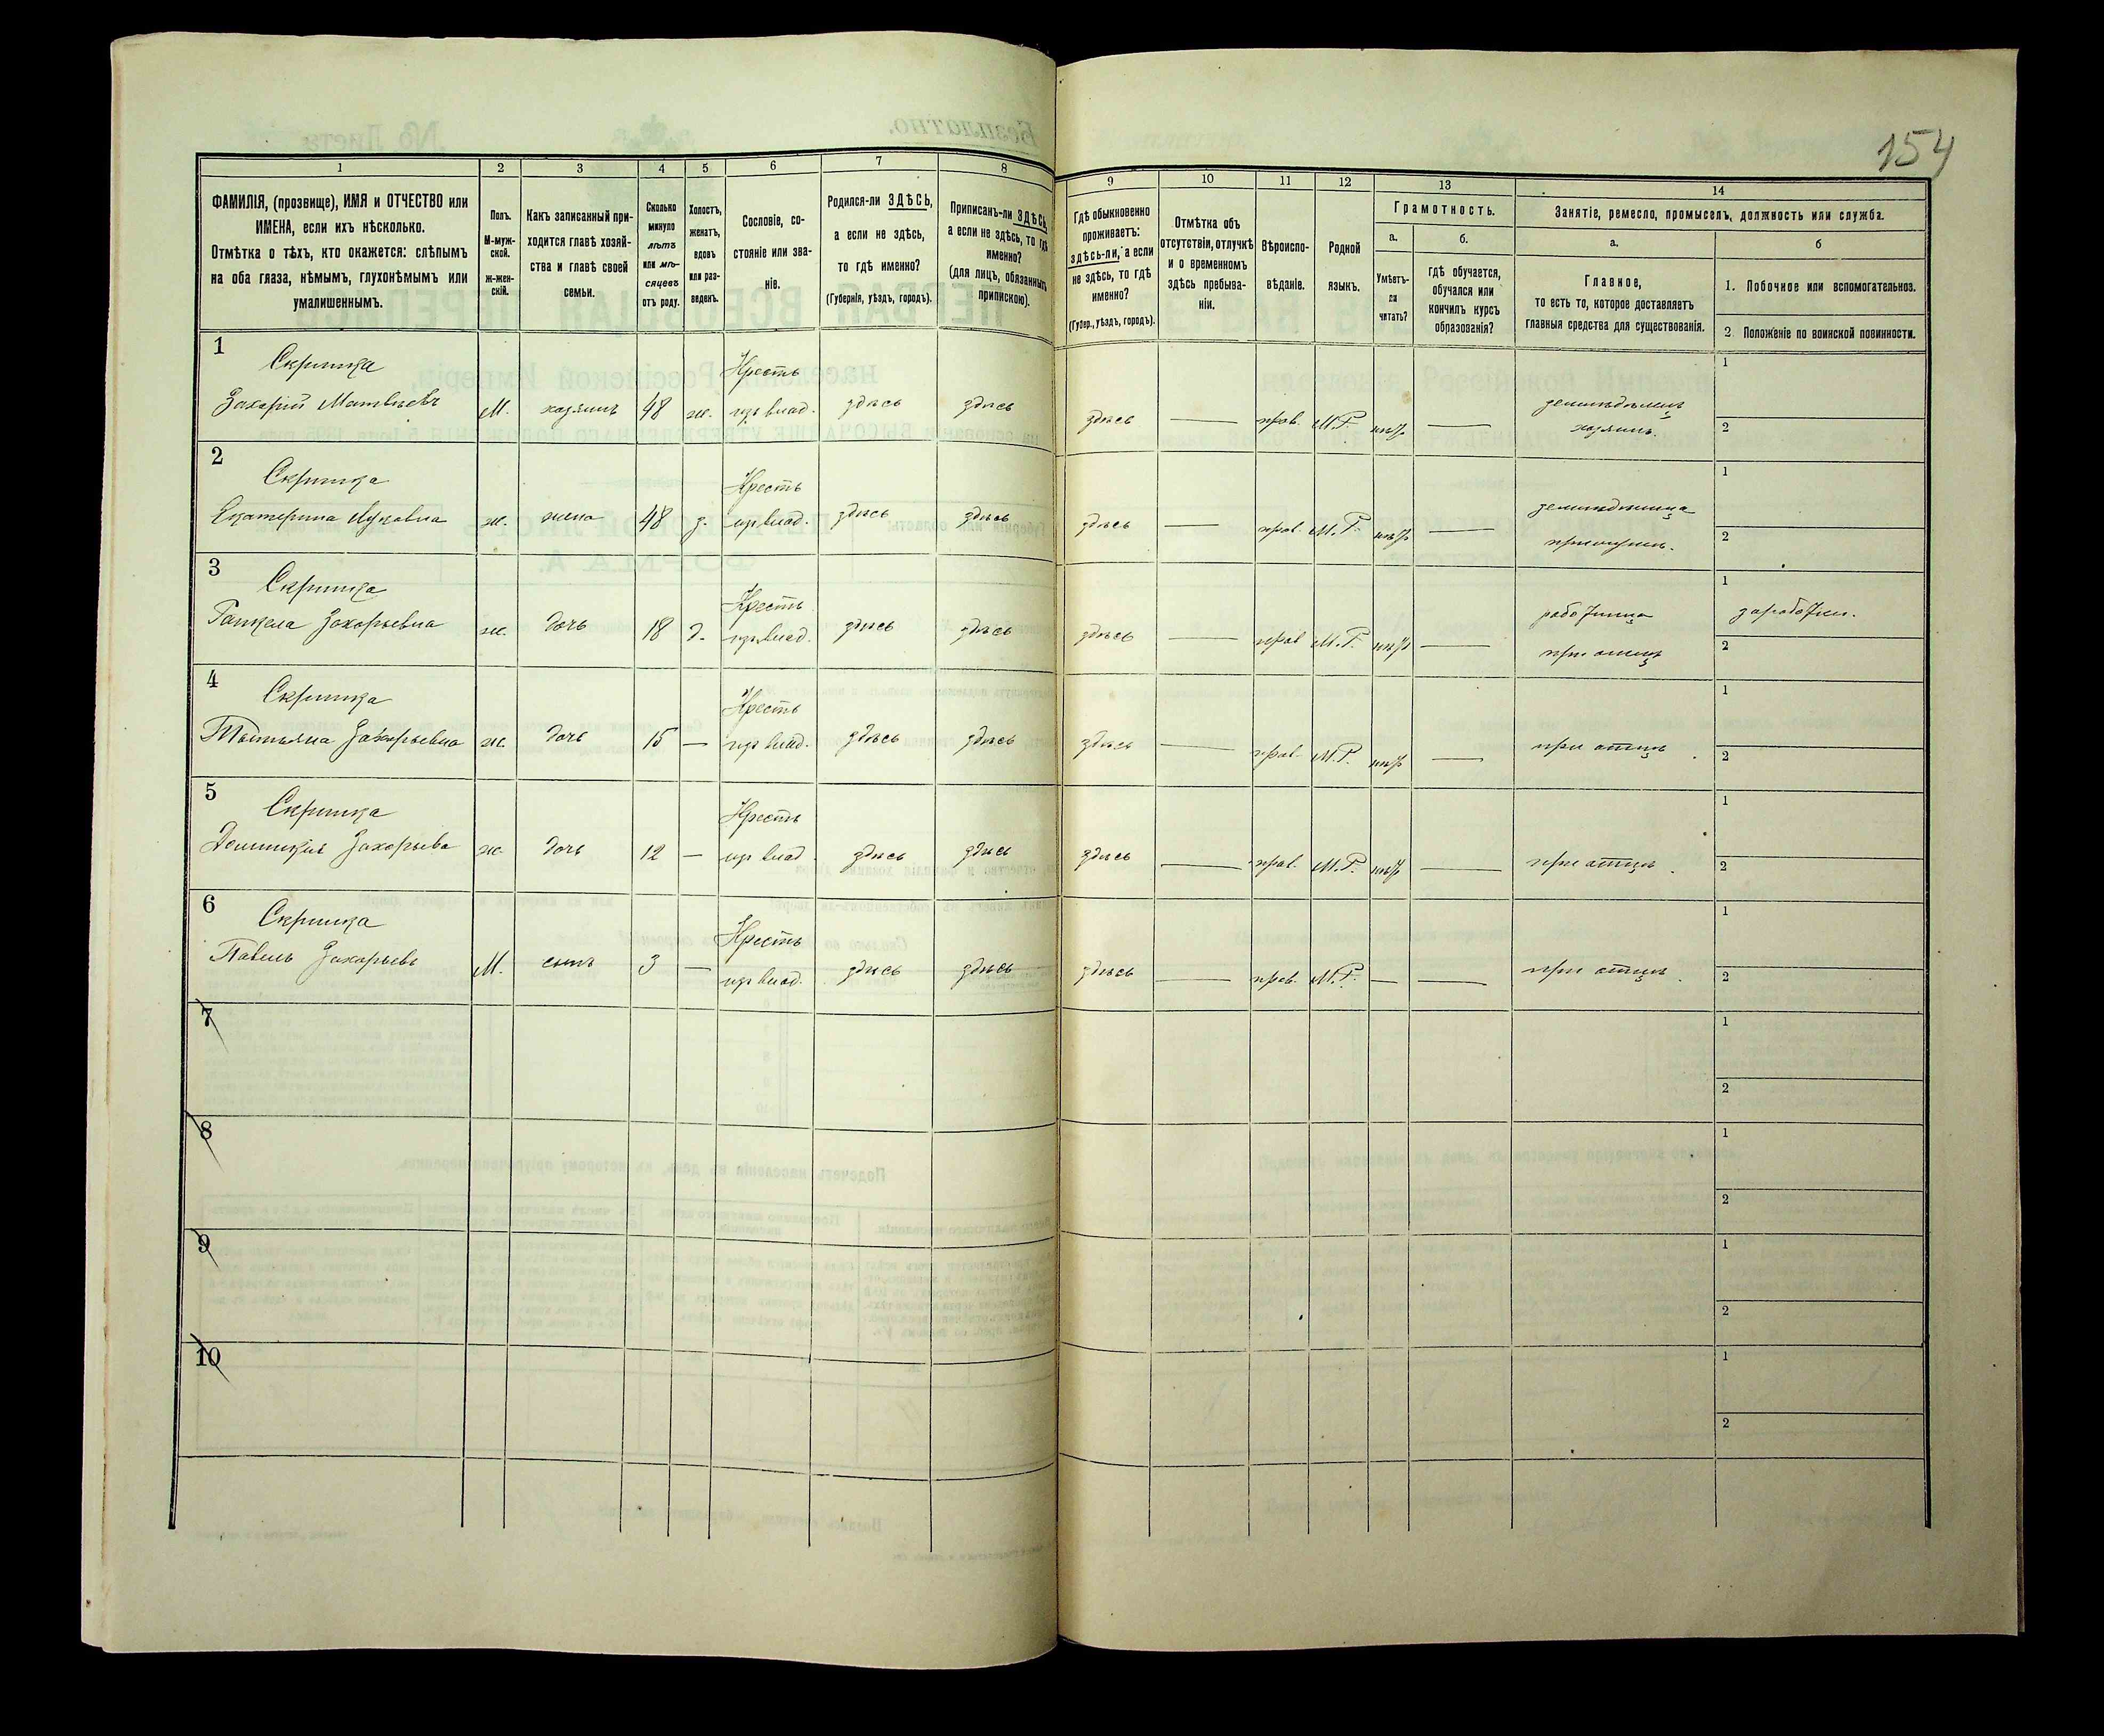 154
1 2 3 4 5 6 7 8 9 10 11 12 13 14
ФАМИЛІЯ, (прозвище), ИМЯ и ОТЧЕСТВО или
ИМЕНА, если ихъ нѣсколько.
Отмѣтка о тѣхъ, кто окажется: слѣпымъ
на оба глаза, нѣмымъ, глухонѣмымъ или
умалишеннымъ.
Полъ.
М-муж-
ской.
ж-жен-
скій.
Какъ записанный при-
ходится главѣ хозяй-
ства и главѣ своей
семьи.
Сколько
минуло
лѣтъ
или мѣ-
сяцевъ
отъ роду.
Холостъ,
женатъ,
вдовъ
или раз-
веденъ.
Сословіе, со-
стояніе или зва-
ніе.
Родился-ли ЗДѢСЬ,
а если не здѣсь,
то гдѣ именно?
(Губернія, уѣздъ, городъ).
Приписанъ-ли ЗДѢСЬ,
а если не здѣсь, то гдѣ
именно?
(для лицъ, обязанныхъ
припискою).
Гдѣ обыкновенно
проживаетъ:
здѣсь-ли, а если
не здѣсь, то гдѣ
именно?
(Губер., уѣздъ, городъ).
Отмѣтка объ
отсутствіи, отлучкѣ
и о временномъ
здѣсь пребыва-
ніи.
Вѣроиспо-
вѣданіе.
Родной
языкъ.
Грамотность.
а.
Умѣетъ-
ли
читать?
б.
гдѣ обучается,
обучался или
кончилъ курсъ
образованія?
Занятіе, ремесло, промыселъ, должность или служба.
а.
Главное,
то есть то, которое доставляетъ
главныя средства для существованія.
б
1. Побочное или вспомогательноз.
2 Положеніе по воинской повинности.
1
Скрипка Кресть
Захарій Матвѣевъ М. хозяинъ 48 ж. изъ влад. здѣсь здѣсь здѣсь — прав. М.Р. нѣтъ — земледѣлецъ
хозяинъ.
1
2
2
Скрипка Кресть
Екатерина Луковна ж. жена 48 з. изъ влад. здѣсь здѣсь здѣсь — прав. М.Р. нѣтъ —
1
2
3
Скрипка Кресть
Захорьевна ж. дочь 18 д. изъ влад. здѣсь здѣсь здѣсь — прав М.Р. нѣтъ — работница
при отцѣ
1
2
4
Скрипка Кресть
Татьяна Захорьевна ж. дочь 15 — изъ влад. здѣсь здѣсь здѣсь — прав. М.Р. нѣтъ — при отцѣ
1
2
5
Скрипка Кресть
Захорьева ж. дочь 12 — изъ влад. здѣсь здѣсь здѣсь — прав. М.Р. нѣтъ — при отцѣ
1
2
6
Скрипка Кресть
Павелъ Захорьевъ М. сынъ 3 — изъ влад. здѣсь здѣсь здѣсь — прав. М.Р. — — при отцѣ
1
2
7
1
2
8
1
2
9
1
2
10
1
2